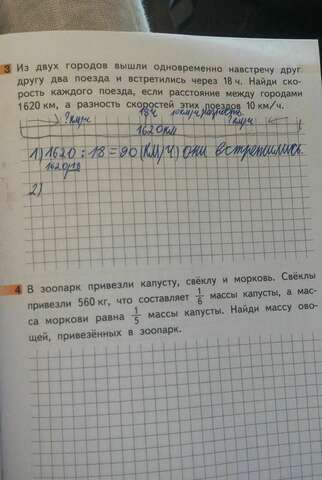 3 Из двух городов вышли одновременно навстречу друг
другу два поезда и встретились через 18 ч. Найди ско-
рость каждого поезда, если расстояние между городами
1620 км, а разность скоростей этих поездов 10 км/ч.
? км/ч 18ч 10км/ч разность ? км/ч
1620км
1) 1620 : 18 = 90 (км/ч) они встретились.
2)
4 В зоопарк привезли капусту, свёклу и морковь. Свёклы
привезли 560 кг, что составляет 1/6 массы капусты, а мас-
са моркови равна 1/5 массы капусты. Найди массу ово-
щей, привезённых в зоопарк.